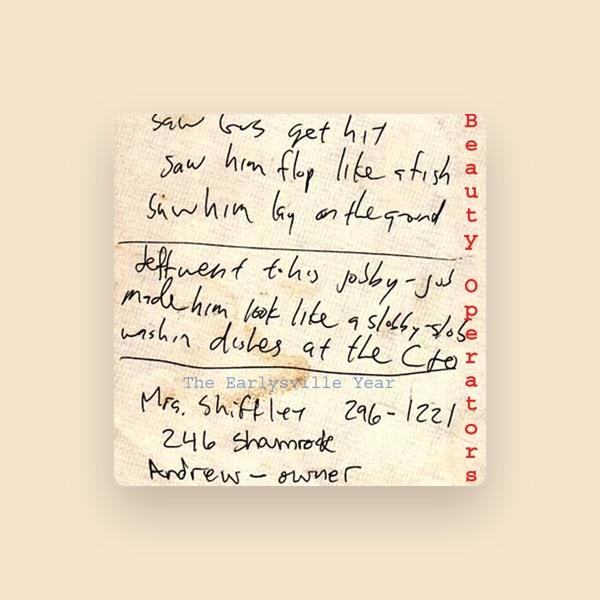 saw Gus get hit
saw him flop like a fish
saw him lay on the ground
Jeff went t his jobby-job
made him look like a slobby-slob
washin dishes at the
The Earlysville Year
Mrs. Shiffley 296-1221
246 Shamrock
Andrew - owner
Beauty Operators